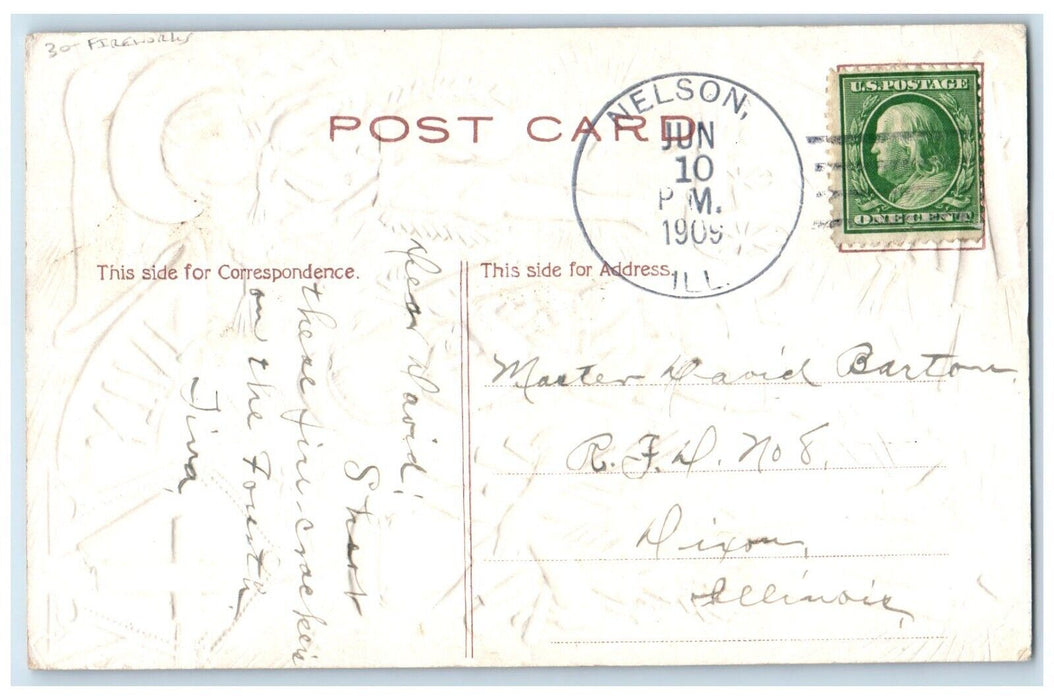 30- FIREWORKS
POST CARD
NELSON,
JUN
10
P M.
1909
ILL.
U.S. POSTAGE
ONE CENT
This side for Correspondence.
This side for Address.
Dear David;
Shoot
these fire-crackers
on the Fourth.
Master David Barton
R.F.D. No 8.
Dixon,
Illinois,